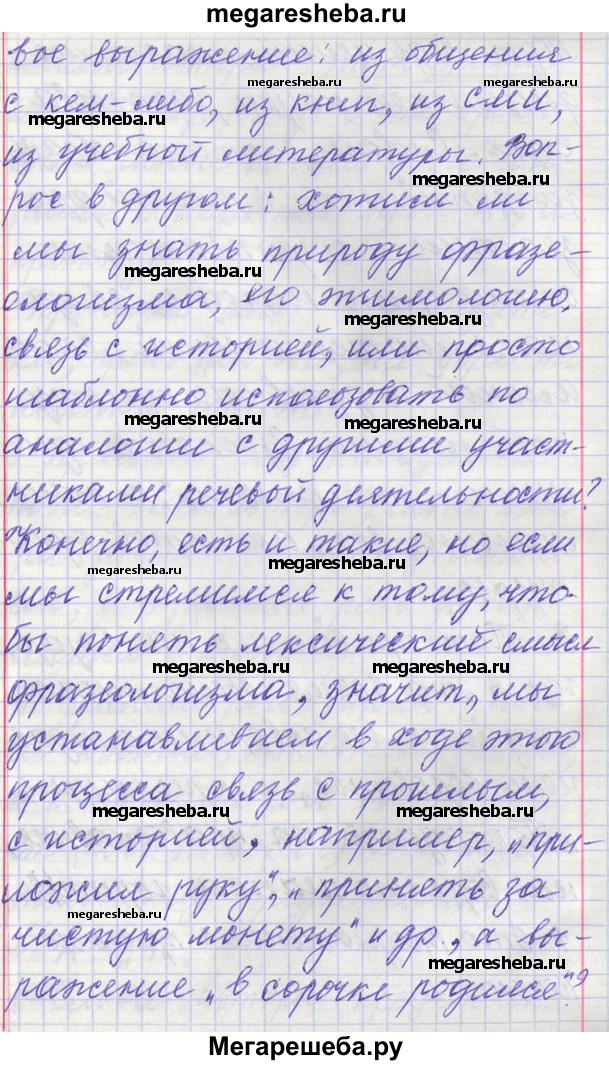 megaresheba.ru
вое выражение: из общения
megaresheba.ru megaresheba.ru
с кем-либо, из книг, из СМИ,
megaresheba.ru
из учебной литературы. Воп-
megaresheba.ru
рос в другом: хотим ли
мы знать природу фразе-
megaresheba.ru
ологизма, его этимологию,
megaresheba.ru
связь с историей, или просто
шаблонно использовать по
megaresheba.ru megaresheba.ru
аналогии с другими участ-
никами речевой деятельности?
Конечно, есть и такие, но если
megaresheba.ru megaresheba.ru
мы стремимся к тому, что-
бы понять лексический смысл
megaresheba.ru megaresheba.ru
фразеологизма, значит, мы
устанавливаем в ходе этого
процесса связь с прошлым,
megaresheba.ru megaresheba.ru
с историей, например, „при-
ложил руку", „принять за
megaresheba.ru
чистую монету" и др., а вы-
megaresheba.ru
ражение „в сорочке родился"
Мегарешеба.ру